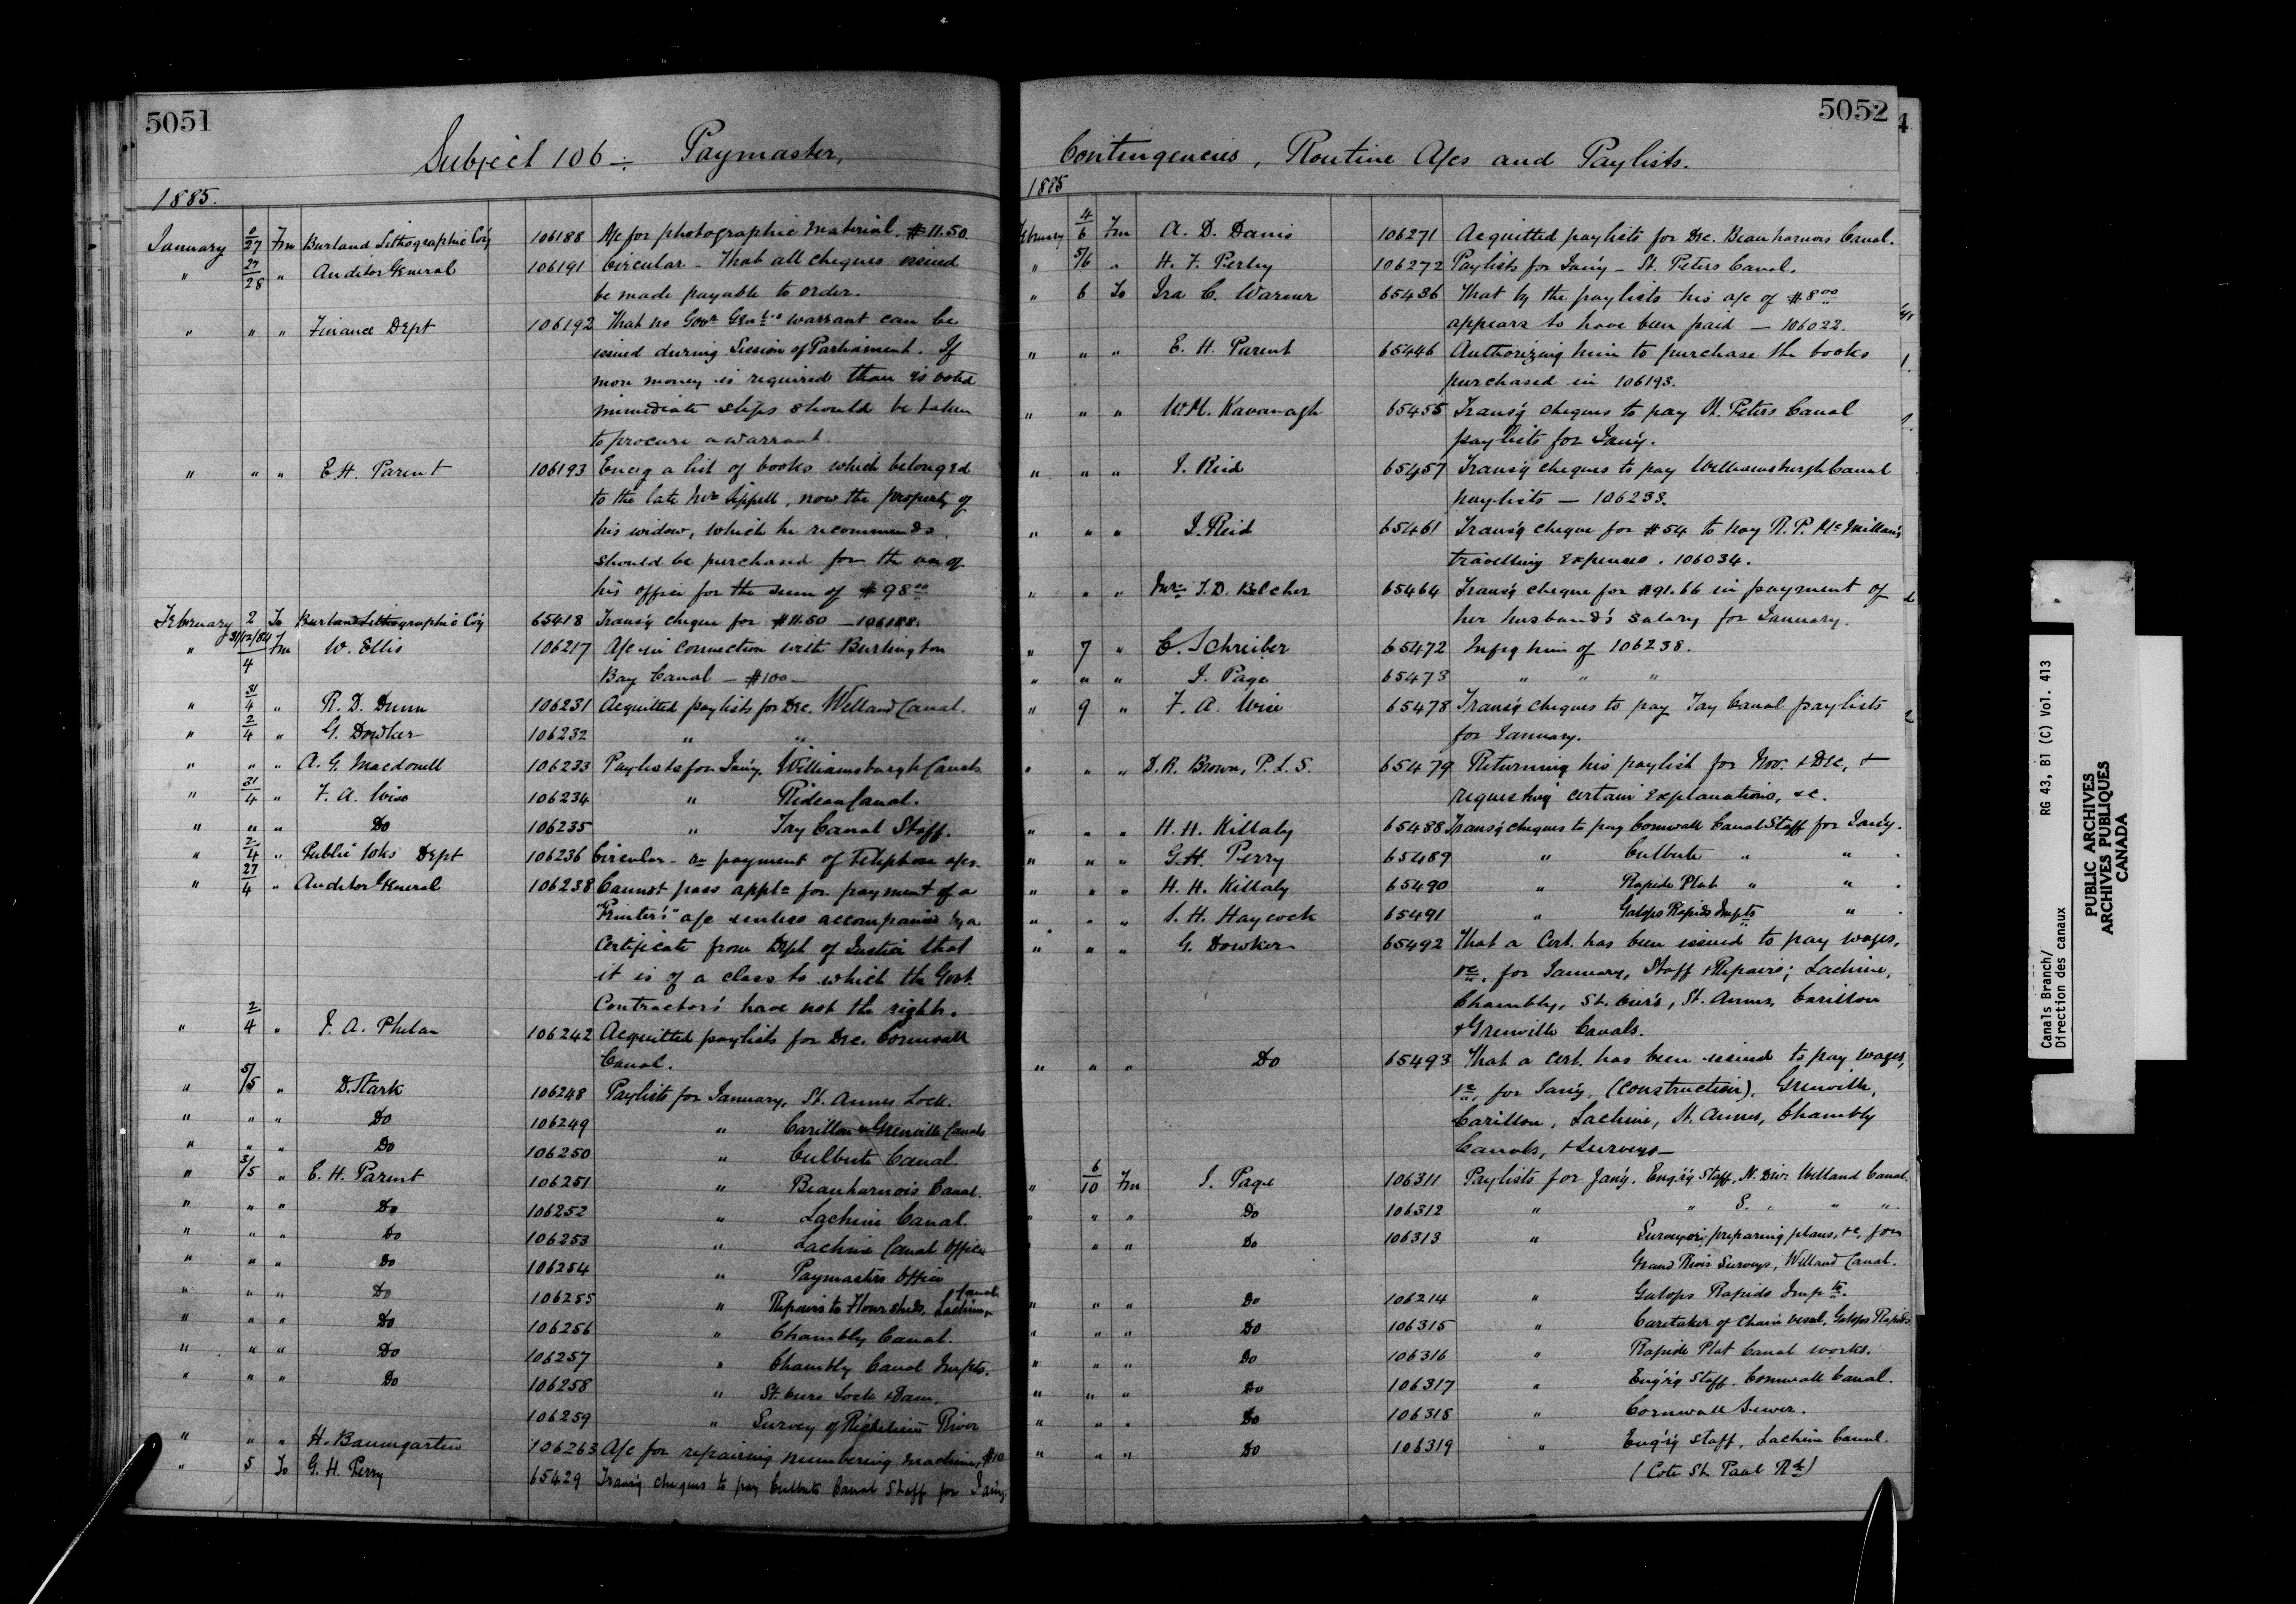 5051
Subject 106 -: Paymaster,
1885.
January 0/27 Fm Burland Lithographic Co'y 106188 A/c for photographic material. $11.50.
" 27/28 " Auditor General 106191 Circular - That all cheques issued
be made payable to order.
" " " Finance Dept 106192 That no Govr Genl's warrant can be
issued during Session of Parliament. If
more money is required than is voted
immediate steps should be taken
to procure a warrant.
" " " E.H. Parent 106193 Encg a list of books which belonged
to the late Mr Sippell, now the property of
his widow, which he recommends
should be purchased for the use of
his office for the sum of $98.00
February 2 To Burland Lithographic Co'y 65418 Trans'g cheque for $11.50 - 106188.
" 31/12/84/4 Fm W. Ellis 106217 A/c in connection with Burlington
Bay Canal - $100 -
" 31/4 " R. D. Dunn 106231 Acquitted paylists for Dec. Welland Canal.
" 2/4 " G. Dowker 106232 " "
" " " A. G. Macdonell 106233 Paylists for Jan'y. Williamsburgh Canals
" 31/4 " F. A. Wise 106234 " Rideau Canal.
" " " Do 106235 " Tay Canal Staff.
" 2/4 " Public Wks Dept 106236 Circular - re payment of Telephone a/cs.
" 27/4 " Auditor General 106238 Cannot pass appln for payment of a
"Printer's" a/c unless accompanied by a
Certificate from Dept of Justice that
it is of a class to which the Govt.
Contractors' have not the right.
" 2/4 " J. A. Phelan 106242 Acquitted paylists for Dec. Cornwall
Canal.
" 5/5 " D. Stark 106248 Paylists for January, St. Annes Lock.
" " " Do 106249 " Carillon & Grenville Canals
" " " Do 106250 " Culbute Canal.
" 3/5 " E. H. Parent 106251 " Beauharnois Canal.
" " " Do 106252 " Lachine Canal.
" " " Do 106253 " Lachine Canal Office
" " " Do 106254 " Paymasters Office
" " " Do 106255 " Repairs to Flour sheds, Lachine Canal
" " " Do 106256 " Chambly Canal.
" " " Do 106257 " Chambly Canal Impts.
" " " Do 106258 " St. Ours Lock & Dam.
106259 " Survey of Richelieu River
" " " H. Baumgarten 106263 A/c for repairing numbering machine, $10
" 5 To G. H. Perry 65429 Trans'g cheques to pay Culbute Canal Staff for Jan'y.
5052
Contingencies, Routine A/cs and Paylists.
1885
February 4/6 Fm A. D. Danis 106271 Acquitted paylists for Dec. Beauharnois Canal.
" 5/6 " H. F. Perley 106272 Paylists for Jan'y - St. Peters Canal.
" 6 To Ira C. Warner 65436 That by the paylists his a/c of $8.00
appears to have been paid - 106022.
" " " E. H. Parent 65446 Authorizing him to purchase the books
purchased in 106193.
" " " W.M. Kavanagh 65455 Trans'g cheques to pay St. Peters Canal
paylists for Jan'y.
" " " J. Reid 65457 Trans'g cheques to pay Williamsburgh Canal
paylists - 106233.
" " " J. Reid 65461 Trans'g cheque for $54 to pay R. P. McMillan's
travelling expenses. 106034.
" " " Mrs J. D. Belcher 65464 Trans'g cheque for $91.66 in payment of
her husband's salary for January.
" 7 " C. Schreiber 65472 Infmg him of 106238.
" " " J. Page 65473 " " "
" 9 " F. A. Wise 65478 Trans'g cheques to pay Tay Canal paylists
for January.
" " " D. R. Brown, P.L.S. 65479 Returning his paylist for Nov. & Dec, &
requesting certain explanations, &c.
" " " H. H. Killaly 65488 Trans'g cheques to pay Cornwall Canal Staff for Jan'y.
" " " G.H. Perry 65489 " Culbute " "
" " " H. H. Killaly 65490 " Rapide Plat " "
" " " S. H. Haycock 65491 " Galops Rapids Impts "
" " " G. Dowker 65492 That a Cert. has been issued to pay wages,
&c., for January, Staff & Repairs; Lachine,
Chambly, St. Ours, St. Annes, Carillon
& Grenville Canals.
" " " Do 65493 That a cert. has been issued to pay wages,
&c., for Jan'y, (construction), Grenville,
Carillon, Lachine, St. Annes, Chambly
Canals, & Surveys -
" 6/10 Fm J. Page 106311 Paylists for Jan'y. Eng'r'g Staff, N. Div: Welland Canal.
" " " Do 106312 " " S. " " "
" " " Do 106313 " Surveyors, preparing plans, &c, for
Grand River Surveys, Welland Canal.
" " " Do 106214 " Galops Rapids Impts.
" " " Do 106315 " Caretaker of Chain vessel, Galops Rapids
" " " Do 106316 " Rapide Plat Canal works.
" " " Do 106317 " Eng'r'g Staff. Cornwall Canal.
" " " Do 106318 " Cornwall Sewer.
" " " Do 106319 " Eng'r'g staff, Lachine Canal.
(Cote St. Paul Rd)
Canals Branch/ RG 43, B1 (C) Vol. 413
Direction des canaux
PUBLIC ARCHIVES
ARCHIVES PUBLIQUES
CANADA